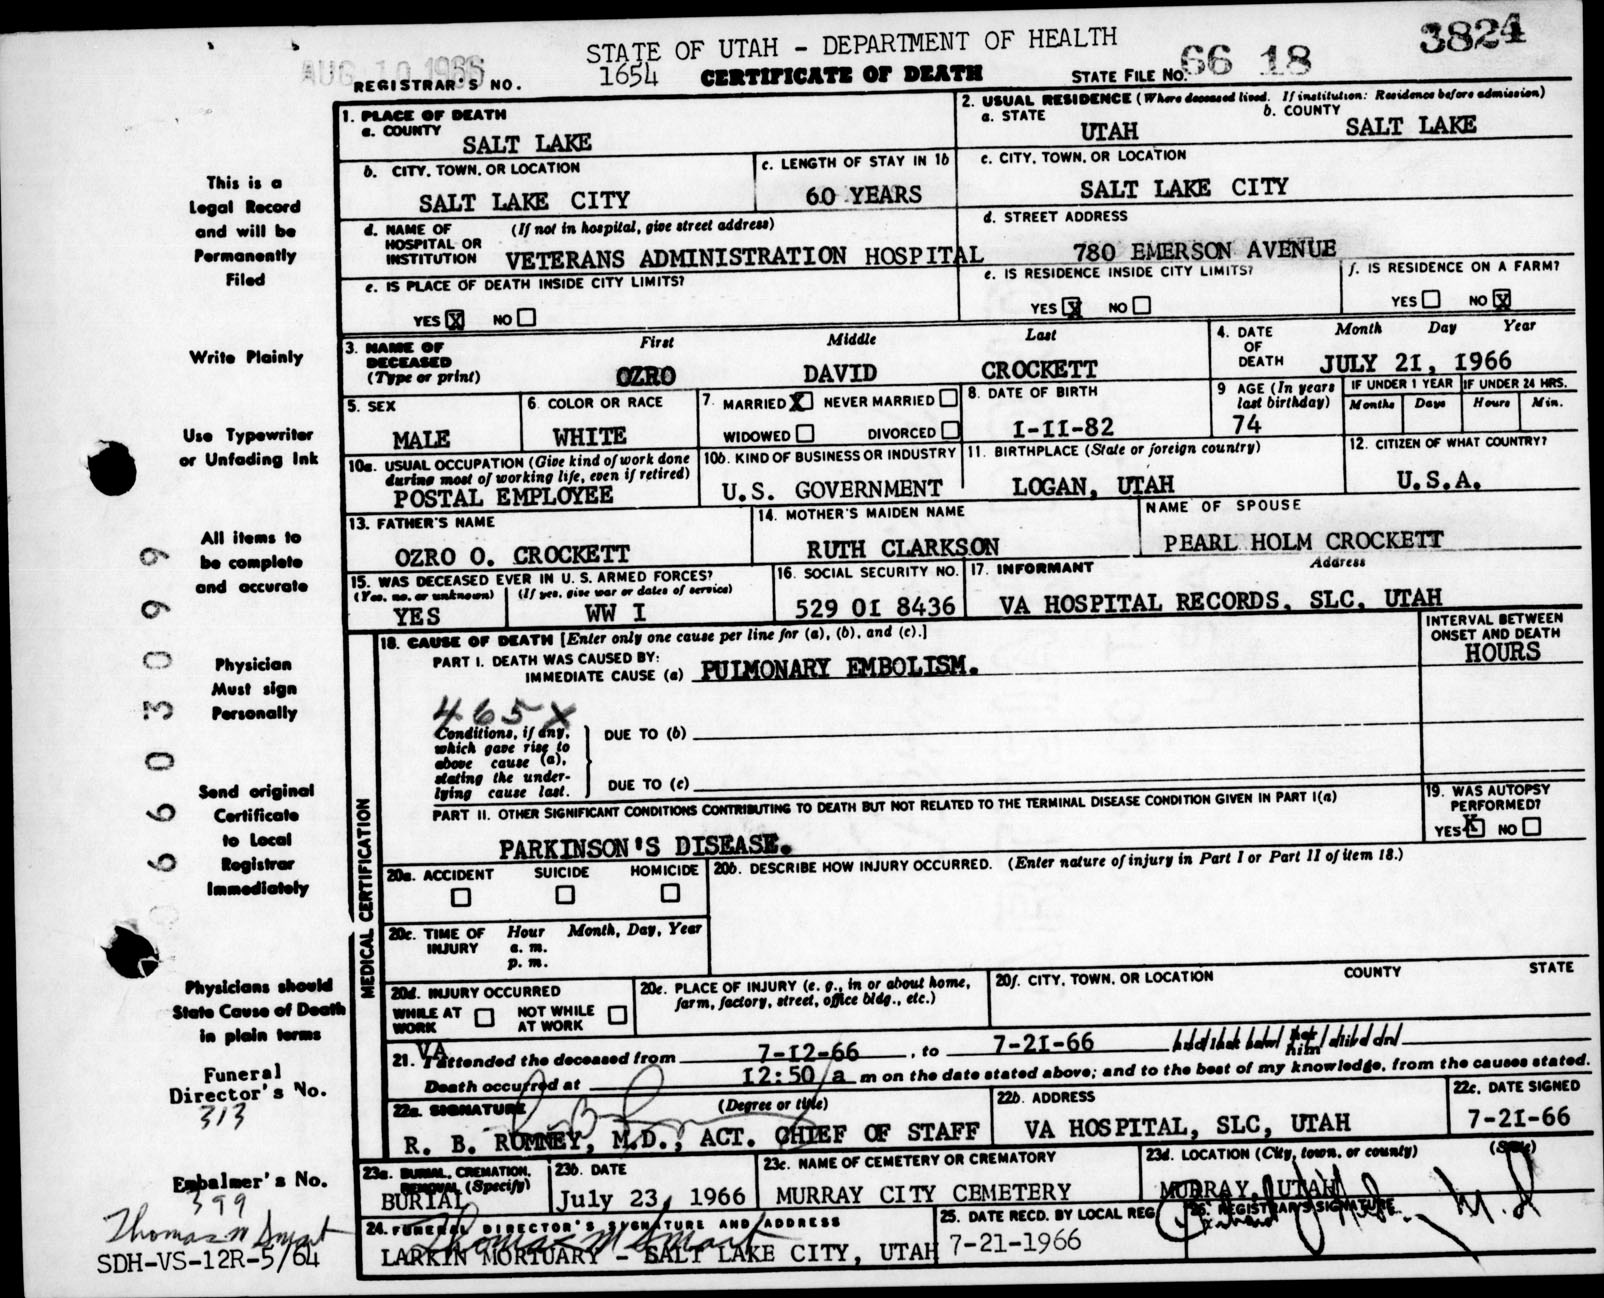 STATE OF UTAH - DEPARTMENT OF HEALTH
3824
AUG 10 1966
REGISTRAR'S NO. 1654 CERTIFICATE OF DEATH STATE FILE NO. 66 18
1. PLACE OF DEATH
a. COUNTY
SALT LAKE
2. USUAL RESIDENCE (Where deceased lived. If institution: Residence before admission)
a. STATE
UTAH
b. COUNTY
SALT LAKE
b. CITY, TOWN, OR LOCATION
SALT LAKE CITY
c. LENGTH OF STAY IN 1b
60 YEARS
c. CITY, TOWN, OR LOCATION
SALT LAKE CITY
d. NAME OF HOSPITAL OR INSTITUTION (If not in hospital, give street address)
VETERANS ADMINISTRATION HOSPITAL
d. STREET ADDRESS
780 EMERSON AVENUE
e. IS PLACE OF DEATH INSIDE CITY LIMITS?
YES X NO
e. IS RESIDENCE INSIDE CITY LIMITS?
YES X NO
f. IS RESIDENCE ON A FARM?
YES NO X
3. NAME OF DECEASED (Type or print)
First Middle Last
OZRO DAVID CROCKETT
4. DATE OF DEATH Month Day Year
JULY 21, 1966
5. SEX
MALE
6. COLOR OR RACE
WHITE
7. MARRIED X NEVER MARRIED
WIDOWED DIVORCED
8. DATE OF BIRTH
1-11-82
9 AGE (In years last birthday)
74
IF UNDER 1 YEAR
Months Days
IF UNDER 24 HRS.
Hours Min.
10a. USUAL OCCUPATION (Give kind of work done during most of working life, even if retired)
POSTAL EMPLOYEE
10b. KIND OF BUSINESS OR INDUSTRY
U.S. GOVERNMENT
11. BIRTHPLACE (State or foreign country)
LOGAN, UTAH
12. CITIZEN OF WHAT COUNTRY?
U.S.A.
13. FATHER'S NAME
OZRO O. CROCKETT
14. MOTHER'S MAIDEN NAME
RUTH CLARKSON
NAME OF SPOUSE
PEARL HOLM CROCKETT
15. WAS DECEASED EVER IN U.S. ARMED FORCES?
(Yes, no, or unknown) (If yes, give war or dates of service)
YES WW I
16. SOCIAL SECURITY NO.
529 01 8436
17. INFORMANT Address
VA HOSPITAL RECORDS, SLC, UTAH
MEDICAL CERTIFICATION
18. CAUSE OF DEATH [Enter only one cause per line for (a), (b), and (c).]
PART I. DEATH WAS CAUSED BY:
IMMEDIATE CAUSE (a) PULMONARY EMBOLISM.
INTERVAL BETWEEN ONSET AND DEATH
HOURS
465X
Conditions, if any, which gave rise to above cause (a), stating the underlying cause last.
DUE TO (b)
DUE TO (c)
PART II. OTHER SIGNIFICANT CONDITIONS CONTRIBUTING TO DEATH BUT NOT RELATED TO THE TERMINAL DISEASE CONDITION GIVEN IN PART I(a)
PARKINSON'S DISEASE.
19. WAS AUTOPSY PERFORMED?
YES X NO
20a. ACCIDENT SUICIDE HOMICIDE
20b. DESCRIBE HOW INJURY OCCURRED. (Enter nature of injury in Part I or Part II of item 18.)
20c. TIME OF INJURY Hour Month, Day, Year
a. m.
p. m.
20d. INJURY OCCURRED
WHILE AT WORK NOT WHILE AT WORK
20e. PLACE OF INJURY (e. g., in or about home, farm, factory, street, office bldg., etc.)
20f. CITY, TOWN, OR LOCATION COUNTY STATE
21. VA attended the deceased from 7-12-66, to 7-21-66
Death occurred at 12:50 a m on the date stated above; and to the best of my knowledge, from the causes stated.
22a. SIGNATURE (Degree or title)
R. B. ROMNEY, M.D., ACT. CHIEF OF STAFF
22b. ADDRESS
VA HOSPITAL, SLC, UTAH
22c. DATE SIGNED
7-21-66
23a. BURIAL, CREMATION, REMOVAL (Specify)
BURIAL
23b. DATE
July 23, 1966
23c. NAME OF CEMETERY OR CREMATORY
MURRAY CITY CEMETERY
23d. LOCATION (City, town, or county) (State)
MURRAY, UTAH
24. FUNERAL DIRECTOR'S SIGNATURE AND ADDRESS
Thomas M Smart
LARKIN MORTUARY - SALT LAKE CITY, UTAH
25. DATE RECD. BY LOCAL REG.
7-21-1966
26. REGISTRAR'S SIGNATURE
This is a
Legal Record
and will be
Permanently
Filed
Write Plainly
Use Typewriter
or Unfading Ink
All items to
be complete
and accurate
Physician
Must sign
Personally
Send original
Certificate
to Local
Registrar
Immediately
Physicians should
State Cause of Death
in plain terms
6 6 0 3 0 9 9
Funeral
Director's No.
313
Embalmer's No.
399
Thomas M Smart
SDH-VS-12R-5/64